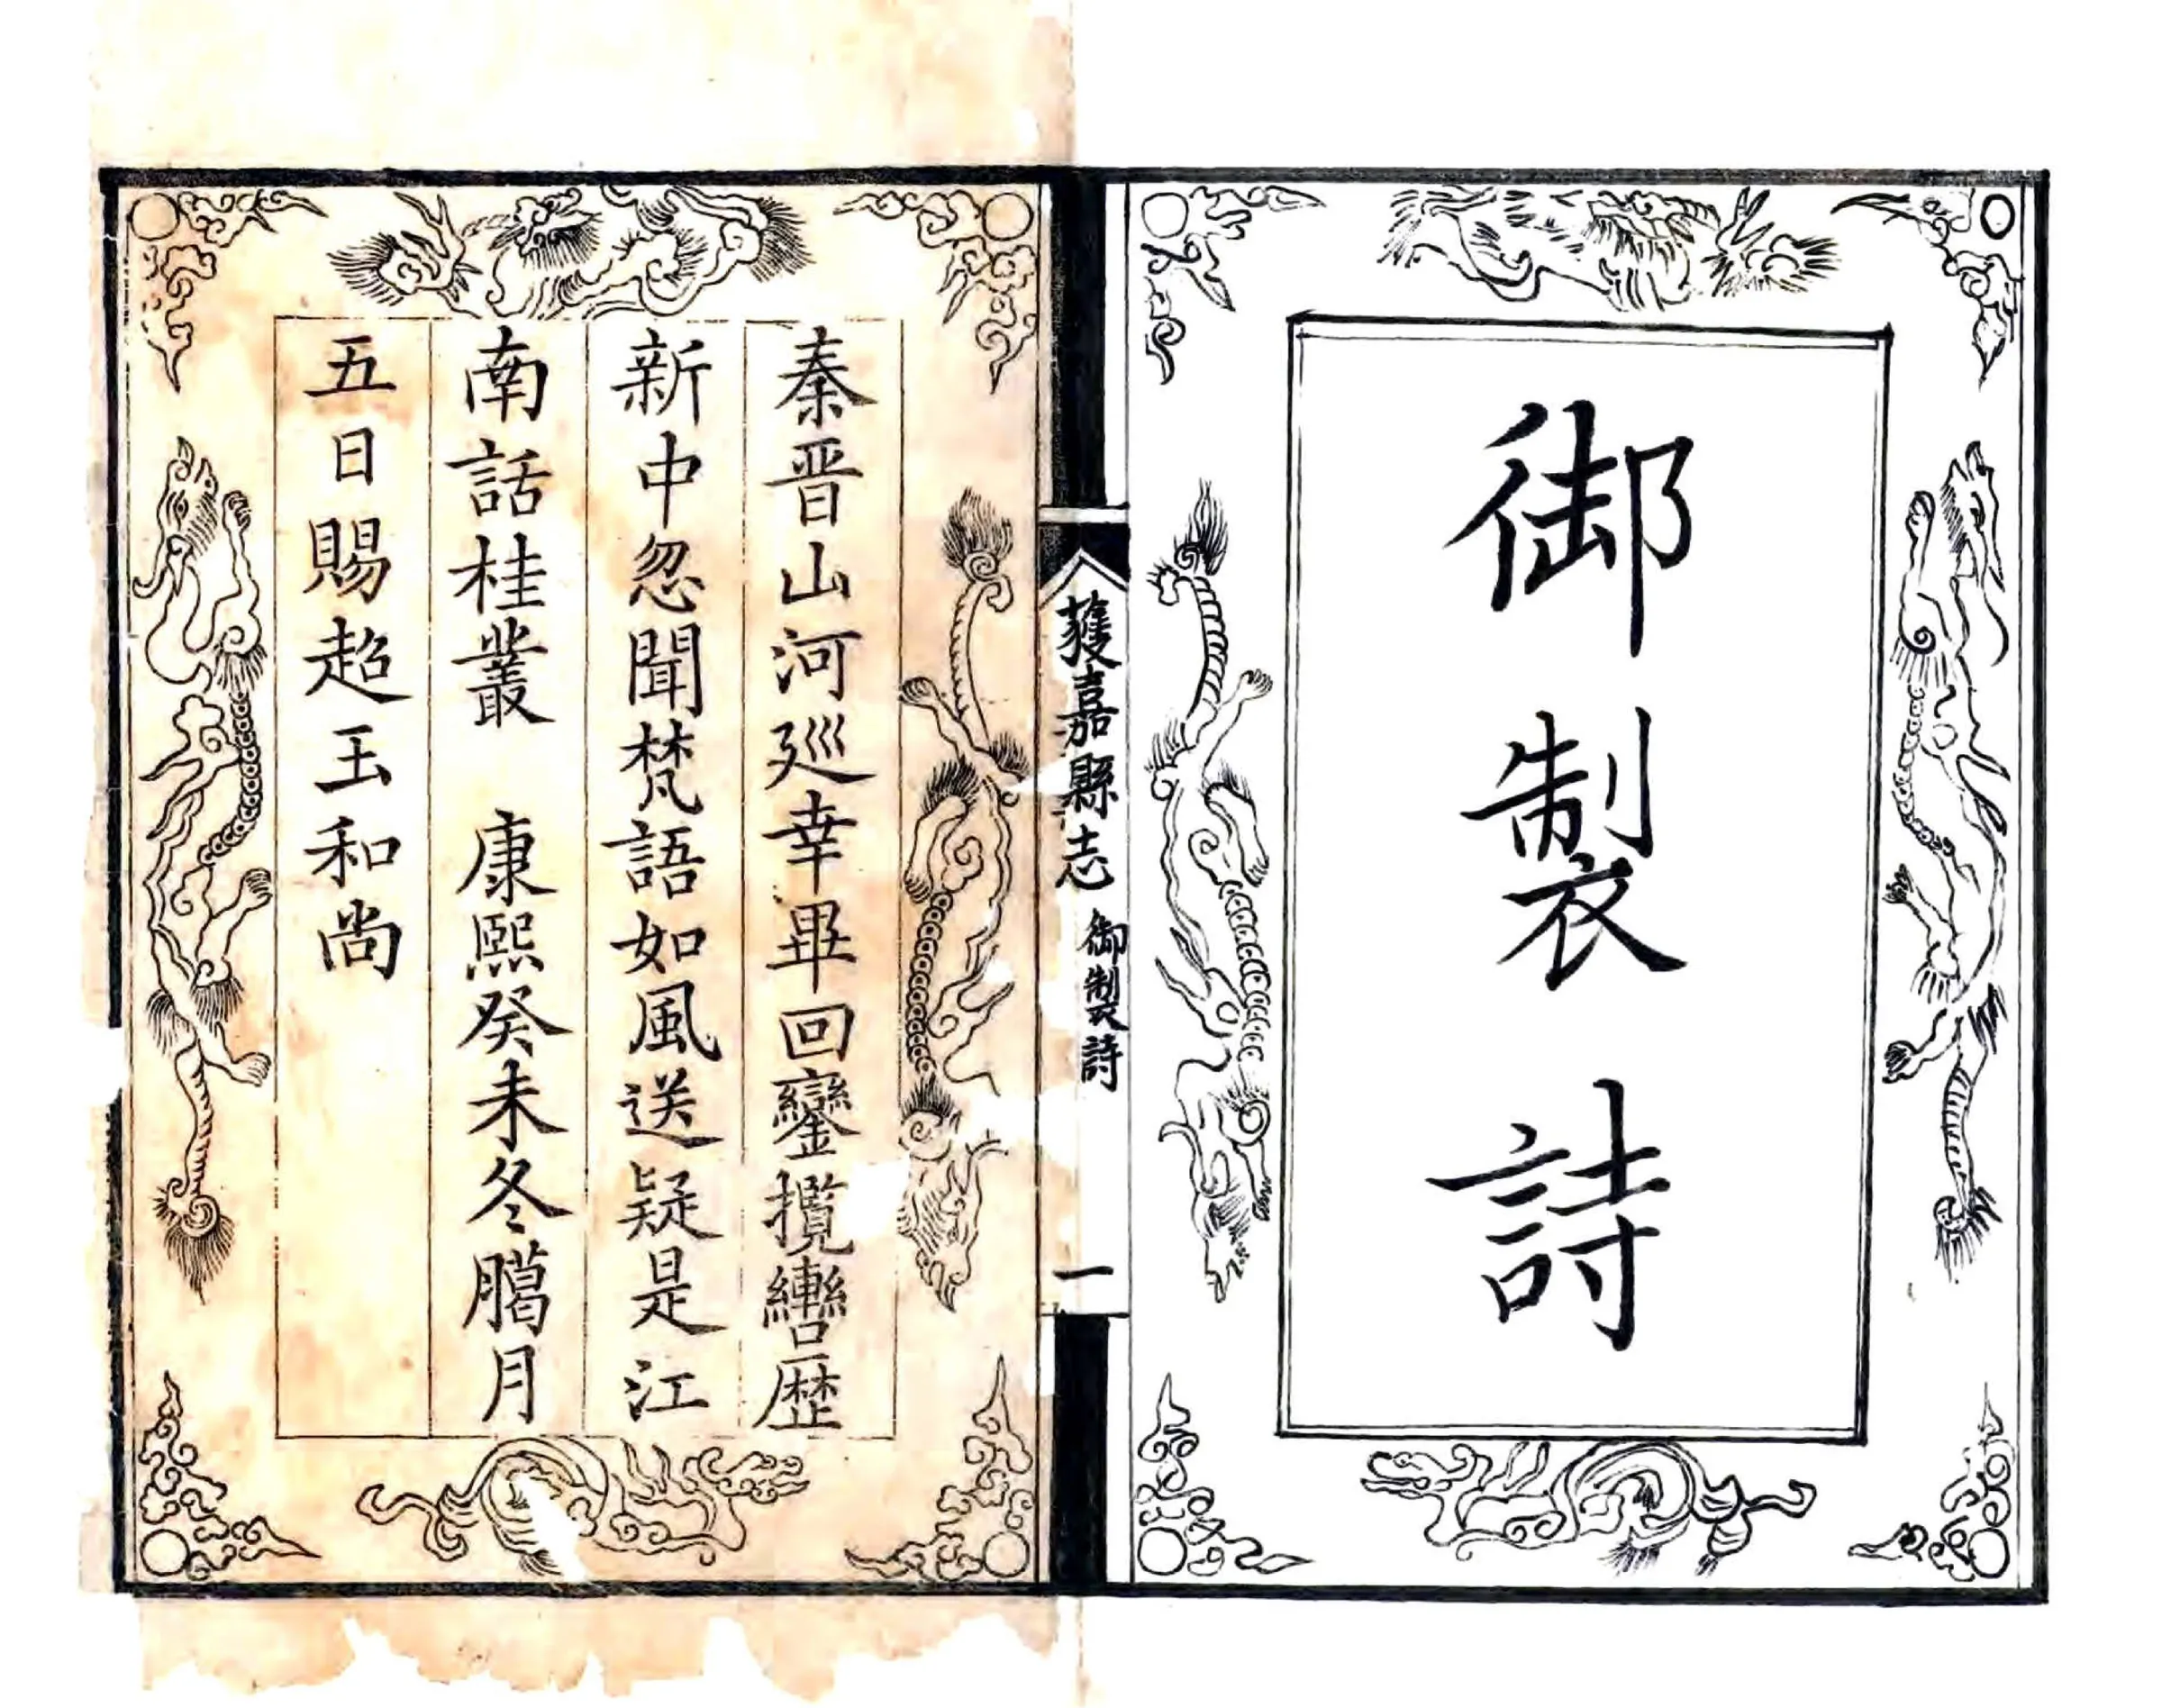 御製詩
獲嘉縣志 御製詩 一
秦晋山河廵幸畢回鑾攬轡歴
新中忽聞梵語如風送疑是江
南話桂叢 康熙癸未冬臈月
五日賜超玉和尚